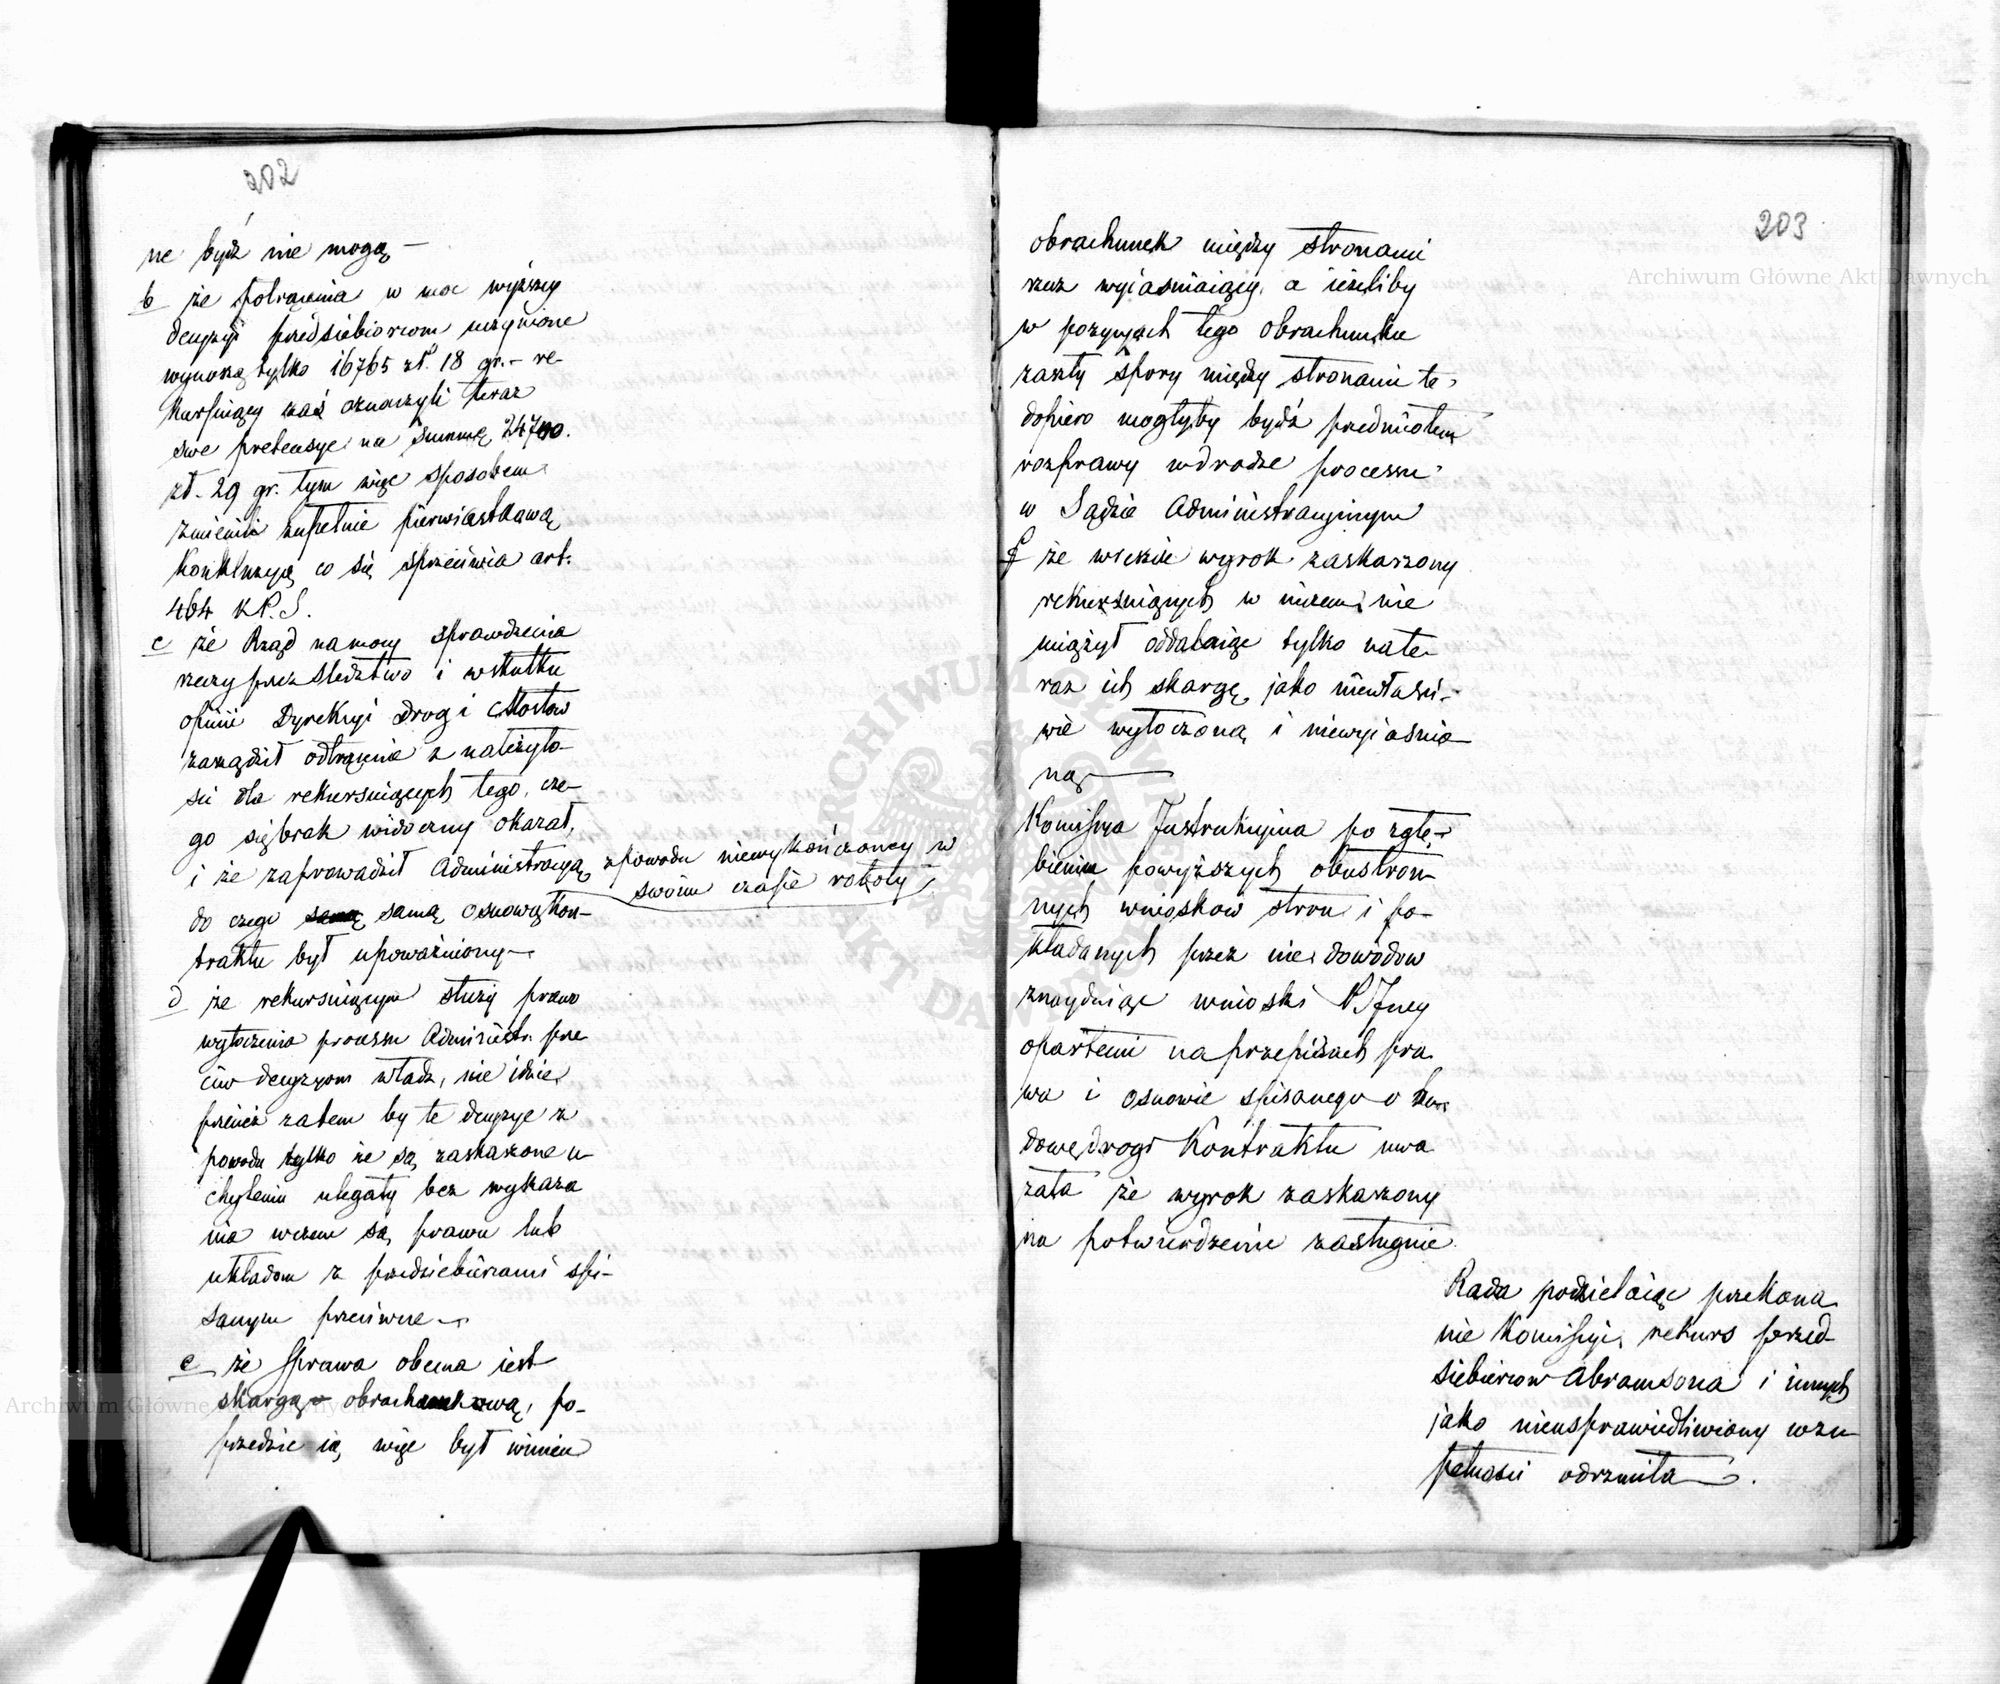 202
ne bydź nie mogą —
b że potrącenia w moc wyższey
decyzyi przedsiebiorcom uczynione
wynoszą tylko 16765 zł. 18 gr. — re-
kursuiący zaś oznaczyli teraz
swe pretensye na Summę 24700.
zł. 29 gr. tym więc sposobem
zmienili zupełnie pierwiastkową
konkluzyą co się sprzeciwia art.
464 K.P.S.
c że Rząd na mocy sprawdzenia
rzeczy przez Sledztwo i w skutku
opinii Dyrekcyi Drog i Mostow
zarządził odtrącenie z należyto-
sci dla rekursuiących tego, cze-
go się brak widoczny okazał,
i że zaprowadził Administracyą zpowodu niewykończoney w
swoim czasie roboty,
do czego samą osnową kon-
traktu był upoważniony —
d że rekursuiącym służy prawo
wytoczenia processu Administr. prze
ciw decyzyom władz, nie idzie
przeciez zatem by te decyzye z
powodu tylko że są zaskarzone u-
chyleniu ulegały bez wykaza
nia wczem są prawu lub
układom z przedsiebiercami spi-
sanym przeciwne —
e że Sprawa obecna iest
skargą obrachunkową, po-
przedzić ią więc był winien
203
obrachunek między stronami
rzecz wyiasniaiący, a ieżeliby
w pozycyach tego obrachunku
zaszły Spory między stronami te
dopiero mogłyby bydź przedmiotem
rozprawy wdrodze processu
w Sądzie Administracyinym
f że wreście wyrok zaskarzony
rekursuiących w niczem nie
uciążył oddalaiąc tylko nate-
raz ich skargę, jako niewłaści-
wie wytoczoną i niewyiasnio-
ną —
Komissya Instrukcyina po zgłę-
bieniu powyższych obustron-
nych wnioskow stron i po-
kładanych przez nie dowodow
znayduiąc wnioski P. Jney
opartemi na przepisach pra
wa i osnowie spisanego o bu-
dowę drogi Kontraktu uwa
żała że wyrok zaskarzony
na potwierdzenie zasługuie.
Rada podzielaiąc przekona
nie Komissyi, rekurs przed
siebiercow Abramsona i innych
jako nieusprawiedliwiony wzu
pełnosci odrzuciła — .